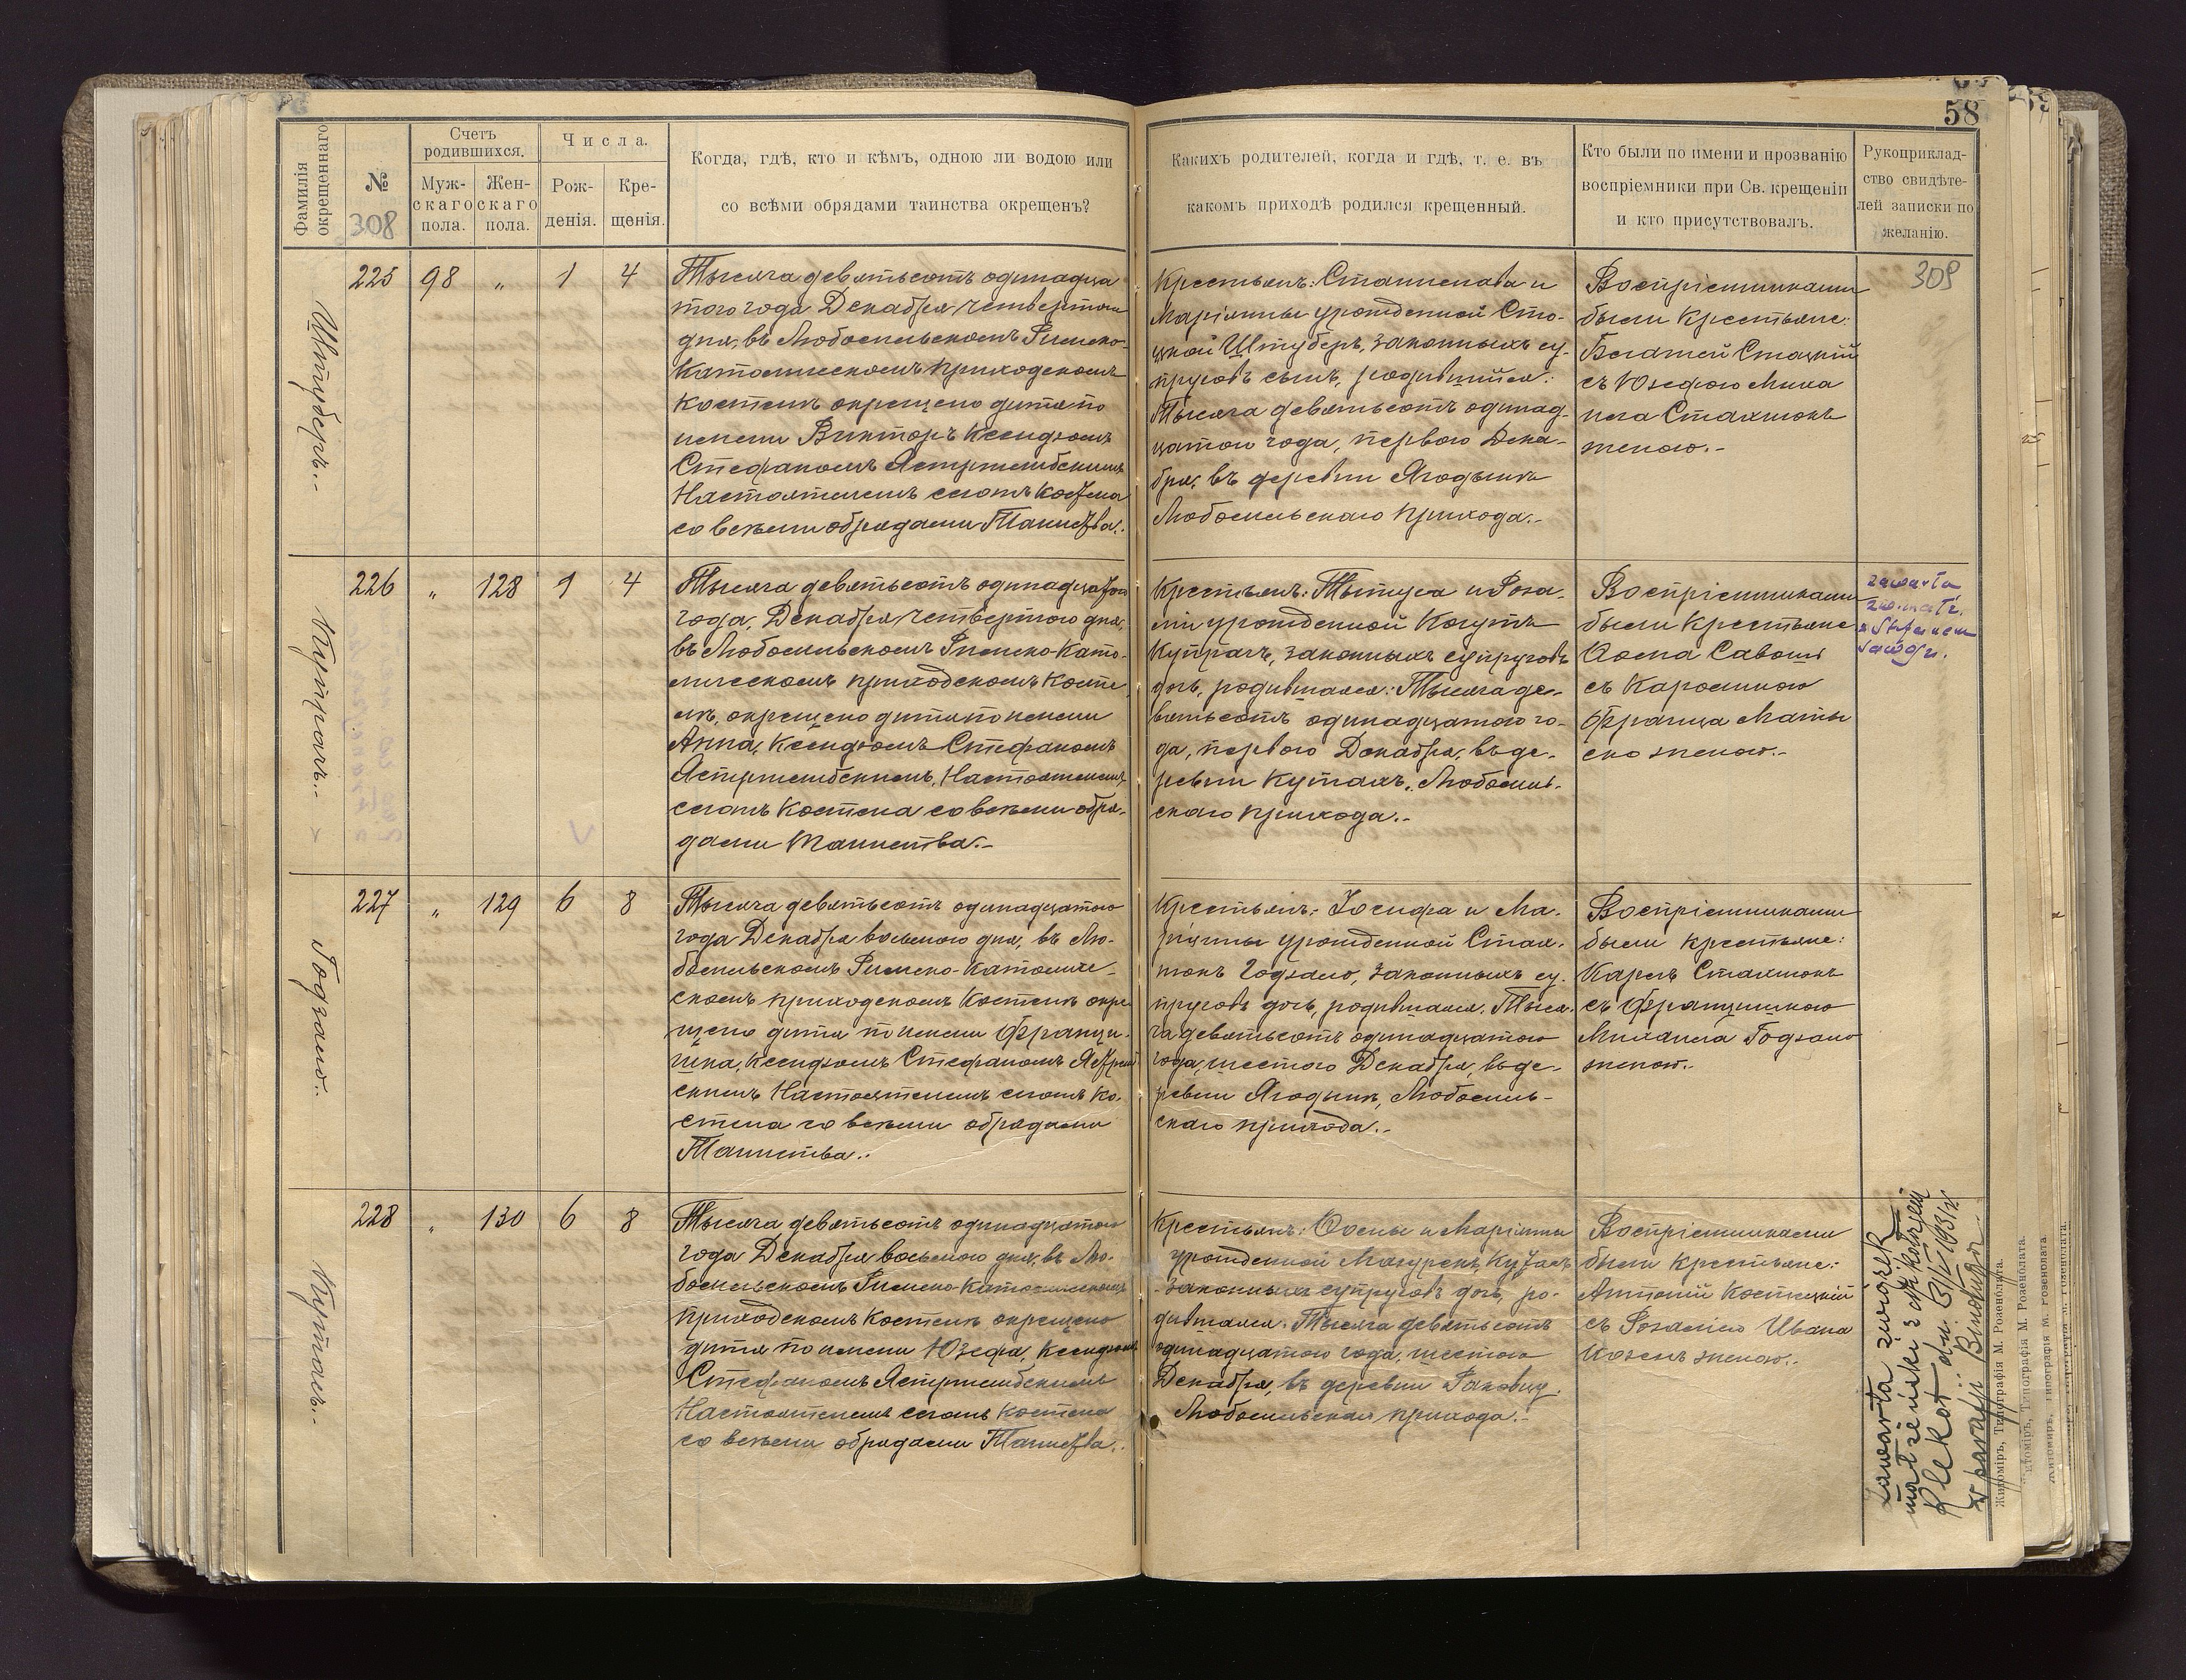 58
Фамилія окрещеннаго
№
308
Счетъ родившихся.
Муж-скаго пола.
Жен-скаго пола.
Числа.
Рож-денія.
Кре-щенія.
Когда, гдѣ, кто и кѣмъ, одною ли водою или
со всѣми обрядами таинства окрещенъ?
Какихъ родителей, когда и гдѣ, т. е. въ
какомъ приходѣ родился крещенный.
Кто были по имени и прозванію
воспріемники при Св. крещеніи
и кто присутствовалъ.
Рукоприклад-
ство свидѣте-
лей записки по
желанію.
309
Штуберъ.-
225 98 „ 1 4
Тысяча девятьсотъ одинадца
того года Декабря четвертого
дня, въ Любомльскомъ Римско-
Католическомъ приходскомъ
костелѣ окрещено дитя по
имени Викторъ Ксендзомъ
Стефаномъ Ястржембскимъ
Настоятелемъ сего костела
со всѣми обрядами Таинства.
Крестьянъ: Станислава и
Маріянны урожденной Ста-
цкой Штуберъ, законныхъ су-
пруговъ сынъ, родившійся:
Тысяча девятьсотъ одинад-
цатого года, первого Дека-
бря, въ деревни Ягодынѣ
Любомльскаго прихода.-
Воспріемниками
были крестьяне:
Стацкій
съ Юзефою Миха
ила Стахнюкъ
женою.-
226 „ 128 1 4
Тысяча девятьсотъ одинадцатого
года, Декабря четвертого дня,
въ Любомльскомъ Римско-Като-
лическомъ приходскомъ косте
лѣ, окрещено дитя по имени
Анна, Ксендзомъ Стефаномъ
Ястржембскимъ, Настоятелемъ
сего костела со всѣми обря-
дами Таинства.-
Крестьянъ: и Роза-
ліи урожденной Когутъ
законныхъ супруговъ
дочь, родившаяся: Тысяча де-
вятьсотъ одинадцатого го-
да, первого Декабря, въ де-
ревни Кутахъ, Любомль-
скаго прихода.-
Воспріемниками
были крестьяне
съ Каролиною
Франца Маты
ско женою.-
zawarła
z Stefanem
227 „ 129 6 8
Годзало.
Тысяча девятьсотъ одинадцатого
года Декабря восьмого дня, въ Лю-
бомльскомъ Римско-католиче-
скомъ приходскомъ костелѣ окре
щено дитя по имени Франци-
шка, Ксендзомъ Стефаномъ
скимъ Настоятелемъ сего ко-
стела со всѣми обрядами
Таинства.
Крестьянъ: Іосифа и Ма-
ріянны урожденной Стах-
нюкъ Годзало, законныхъ су-
пруговъ дочь, родившаяся: Тыся-
ча девятьсотъ одинадцатого
года, шестого Декабря, въ де-
ревни Ягодынѣ, Любомль-
скаго прихода.-
Воспріемниками
были крестьяне:
Карлъ Стахнюкъ
съ Францишкою
Михаила Годзало
женою.-
228 „ 130 6 8
Тысяча девятьсотъ одинадцатого
года Декабря восьмого дня, въ Лю-
бомльскомъ Римско-католическомъ
приходскомъ костелѣ окрещено
дитя по имени Юзефа, Ксендзомъ
Стефаномъ Ястржембскимъ
Настоятелемъ сего костела
со всѣми обрядами Таинства.
Крестьянъ: и Маріянны
урожденной Мазурекъ
законныхъ супруговъ дочь, ро-
дившаяся: Тысяча девятьсотъ
одинадцатого года, шестого
Декабря, въ деревни
Любомльскаго прихода.-
Воспріемниками
были крестьяне:
Антоній
съ Розаліею Ивана
Козелъ женою.-
zawarła związek
małżeński z Mikołajem
w parafji
Житоміръ, Типографія М. Розенблата.